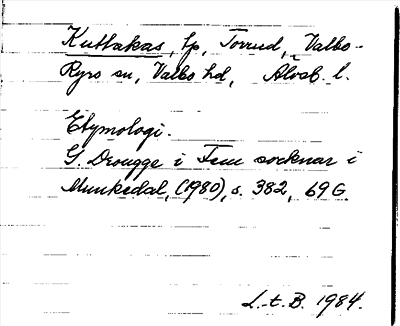 Kuttakas, lp, Torrud, Valbo-
Ryrs sn, Valbo hd, Älvsb. l.
Etymologi.
G. Drougge i Fem socknar i
Munkedal, (1980), s. 382, 69G.
L.t.B. 1984.